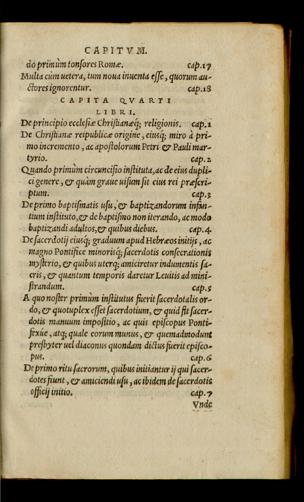 CAPITVM.
do primùm tonsores Romæ. cap.17
Multa cùm uetera, tum noua inuenta esse, quorum au-
ctores ignorentur. cap.18
CAPITA QVARTI
LIBRI.
De principio ecclesiæ Christianæq; religionis. cap.1
De Christianæ reipublicæ origine, eiusq; miro à pri-
mo incremento, ac apostolorum Petri & Pauli mar-
tyrio. cap.2
Quando primùm circuncisio instituta, ac de eius dupli-
ci genere, & quàm graue uisum sit eius rei præscri-
ptum. cap.3
De primo baptismatis usu, & baptizandorum infan-
tium instituto, & de baptismo non iterando, ac modo
baptizandi adultos, & quibus diebus. cap.4
De sacerdotij eiusq; graduum apud Hebræos initijs, ac
magno Pontifice minorisq; sacerdotis consecrationis
mysterio, & quibus uterq; amiciretur indumentis sa-
cris, & quantum temporis daretur Leuitis ad mini-
strandum. cap.5
A quo nostr primùm institutus fuerit sacerdotalis or-
do, & quotuplex esset sacerdotium, & quid sit sacer-
dotis manuum impositio, ac quis episcopus Ponti-
fexue, atq; quale eorum munus, & quemadmodunt
presbyter uel diaconus quondam dictus fuerit episco-
pus. cap.6
De primo ritu sacrorum, quibus initiantur ij qui sacer-
dotes fiunt, & amiciendi usu, ac ibidem de sacerdotis
officij initio. cap.7
Vnde